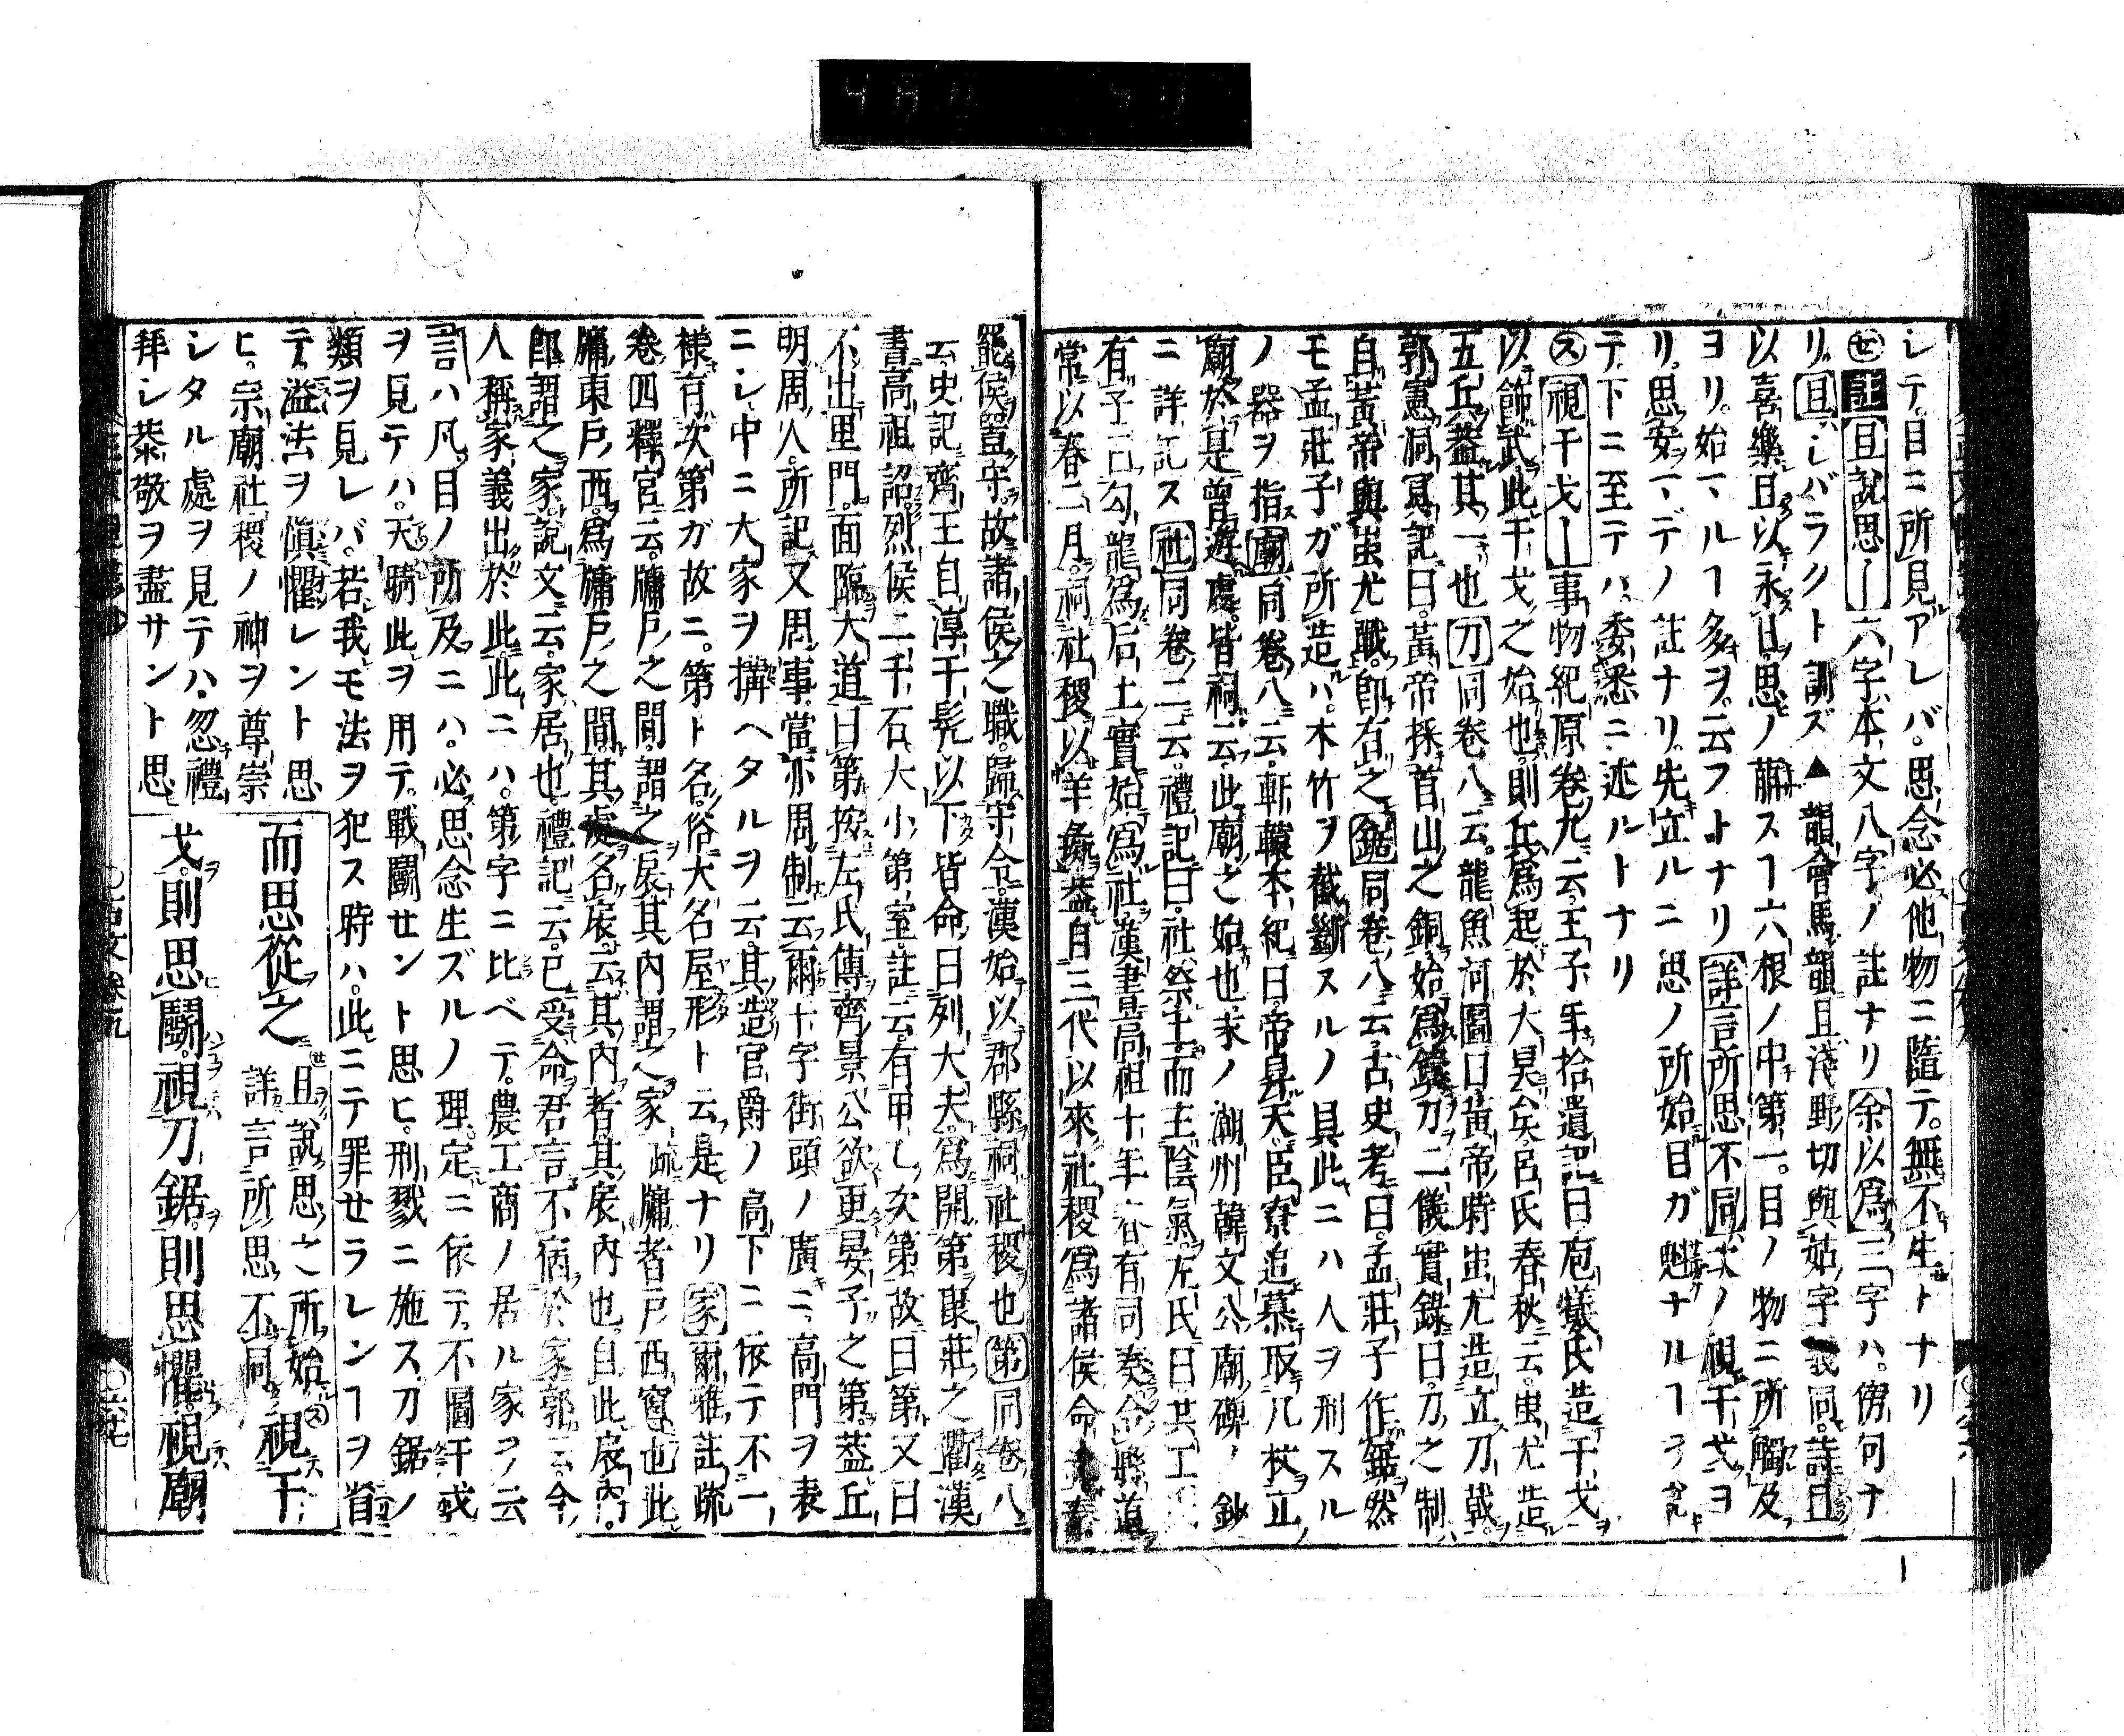 レテ目ニ所見アレバ思念必他物ニ隨テ無不生トナリ
㊆註且說思ー六字本文八字ノ註ナリ余以爲三字ハ傍句ナ
リ且シバラクト訓ズ▲韻會馬韻且淺野切與姑字義同詩且
以喜樂且以永日思ノ萠スヿ六根ノ中第一目ノ物ニ所觸及
ヨリ始一ルヿ多ヲ云フトナリ詳言所思不同次ノ視干戈ヨ
リ思安一デノ註ナリ先立ルニ思ノ所始目ガ魁ナルヿヲ說
テ下ニ至テハ委悉ニ述ルトナリ
㋜視干戈ー事物紀原卷九云王子年拾遺記曰庖犧氏造干戈
以飾武此干戈之始也則兵爲起於大昊矣呂氏春秋云蚩尤造
五兵蓋其一也刀同卷八云龍魚河圖曰黃帝時蚩尤造立刀戟
郭憲洞冥記曰黃帝採首山之銅始爲鑄刀二儀實錄曰刀之制
自黃帝與蚩尤戰即有之鋸同卷八云古史考曰孟莊子作鋸然
モ孟莊子ガ所造ハ木竹ヲ截斷スルノ具此ニハ人ヲ刑スル
ノ器ヲ指廟同卷八云軒轅本紀曰帝昇天臣寮追慕取几杖立
廟於是曾遊處皆祠云此廟之始也求ノ潮州韓文公廟碑ノ鈔
ニ詳記ス社同卷二云禮記曰社祭土而主陰氣左氏曰共工
有子曰勾龍爲后土實始爲社漢書高祖十年春有司奏令縣道
常以春二月祠社稷以羊彘蓋自三代以來社稷爲諸侯命
罷侯置守故諸侯之職歸守令漢始以郡縣祠社稷也第同卷八
云史記齊王自淳于髡以下皆命曰列大夫爲開第康莊之衢漢
書高祖詔列侯二千石大小第室註云有甲乙次第故曰第又曰
不出里門面臨大道曰第按左氏傳齊景公欲更晏子之第蓋丘
明周人所記又周事當亦周制云爾十字街頭ノ廣ニ高門ヲ表
ニレ中ニ大家ヲ搆ヘタルヲ云其造官爵ノ高下ニ依テ不一
樣有次第ガ故ニ第ト名俗大名屋形ト云是ナリ家爾雅註疏
卷四釋官云牖戶之間謂之扆其內謂之家疏牖者戶西窻也此
牖東戶西爲牖戶之間其處名扆云其內者其扆內也自此扆內
即謂之家說文云家居也禮記云已受命君言不宿於家郭云今
人稱家義出於此此ニハ第字ニ比ベテ農工商ノ居ル家ヲノ云
言ハ凡目ノ所及ニハ必思念生ズルノ理定ニ依テ不圖干戈
ヲ見テハ天騎此ヲ用テ戰鬪セント思ヒ刑戮ニ施ス刀鋸ノ
類ヲ見レバ若我モ法ヲ犯ス時ハ此ニテ罪セラレンヿヲ省
テ溢法ヲ愼懼レント思
ヒ宗廟社稷ノ神ヲ尊崇
シタル處ヲ見テハ忽禮
拜シ恭敬ヲ盡サント思
而思從之 且說思之所始 詳言所思不同 視干
戈則思鬪視刀鋸則思懼視廟